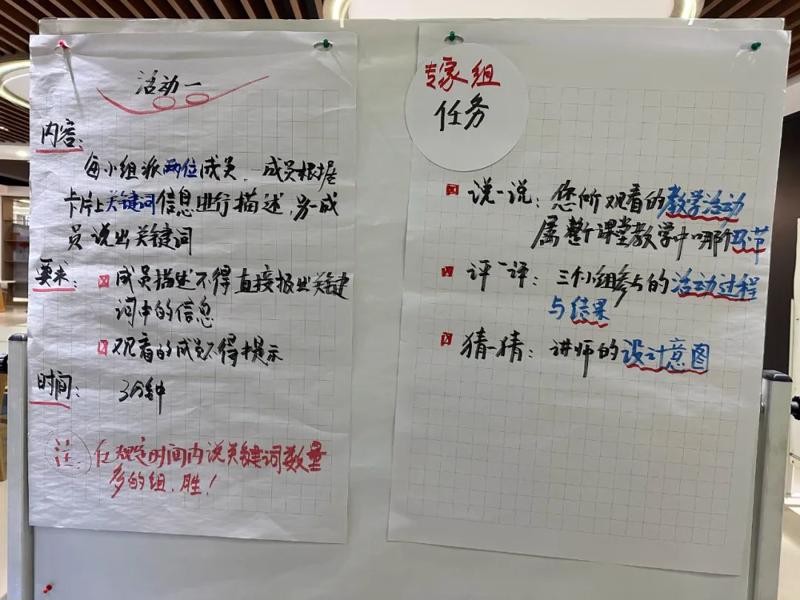 活动一
内容：
每小组派两位成员，成员根据
卡片上关键词信息进行描述，另一成
员说出关键词
要求：
成员描述不得直接报出关键
词中的信息
观看的成员不得提示
时间：
3分钟
注：在规定时间内说关键词数量
多的组，胜！
专家组
任务
说一说：您所观看的教学活动
属整个课堂教学中哪个环节
评一评：三个小组参与的活动过程
与结果
猜一猜：讲师的设计意图